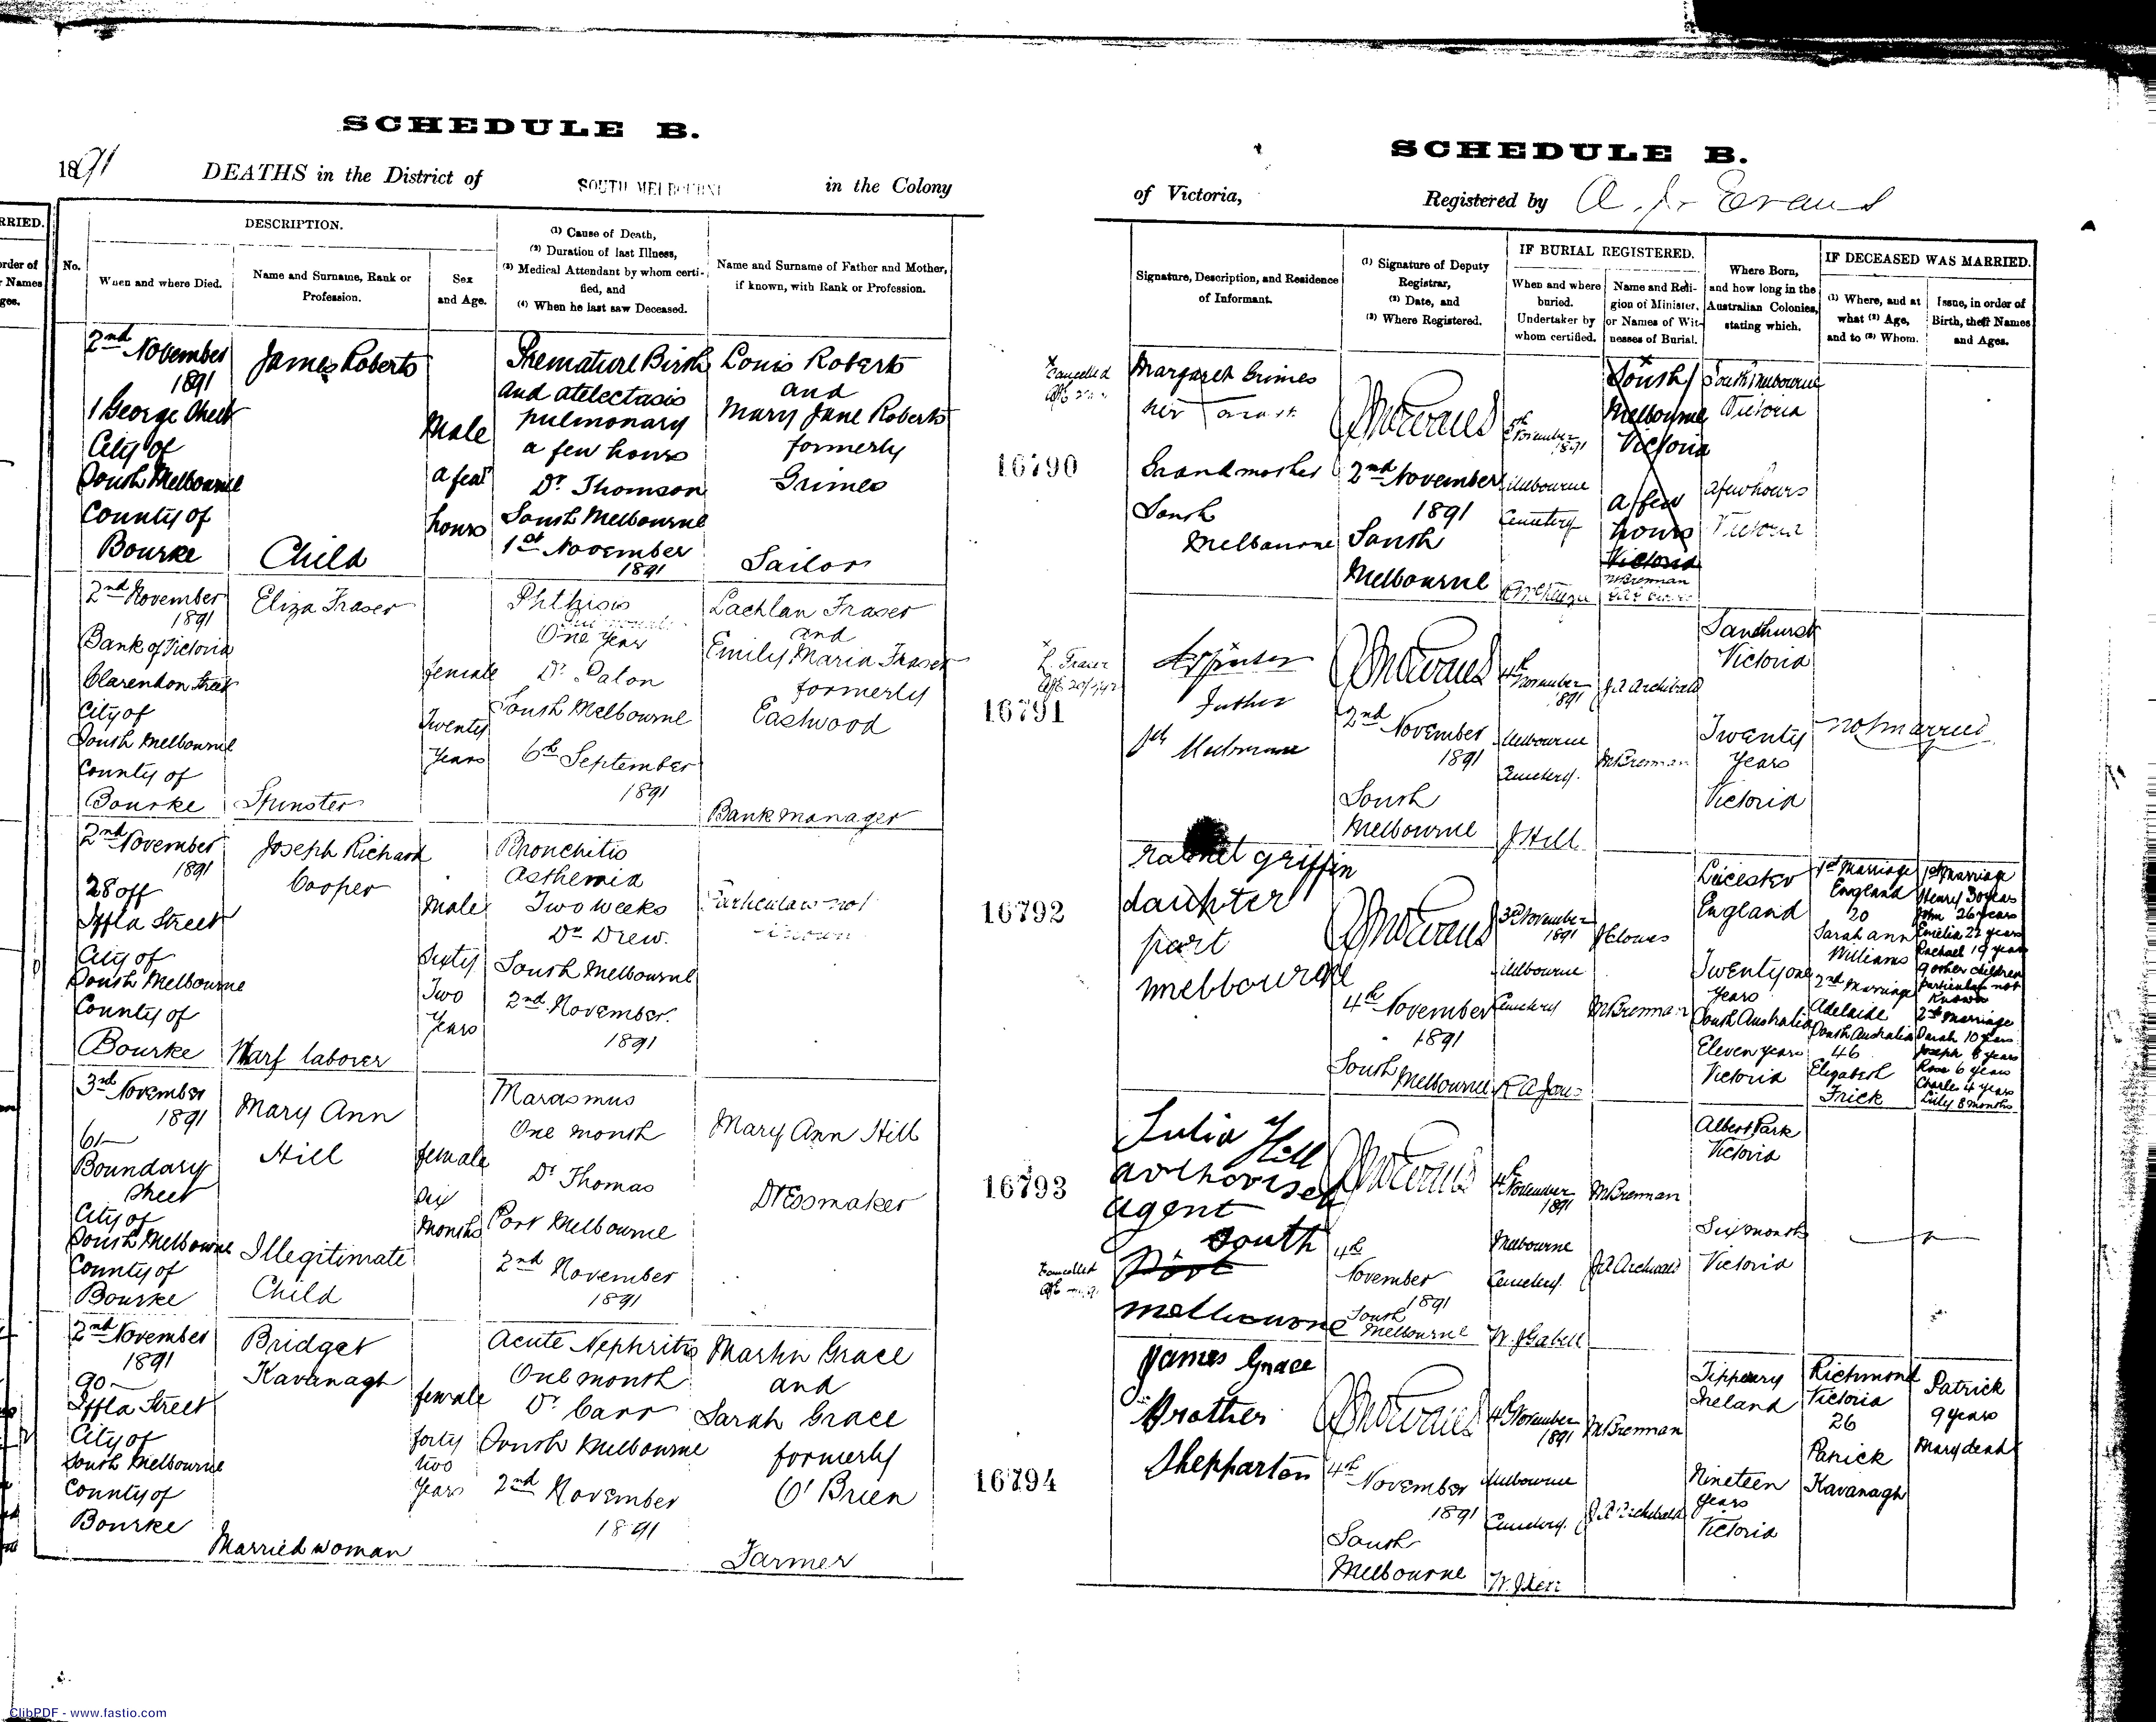 SCHEDULE B.
1891 DEATHS in the District of SOUTH MELBOURNE in the Colony
RRIED.
order of
r Names
ges.
No.
DESCRIPTION.
When and where Died.
Name and Surname, Rank or
Profession.
Sex
and Age.
(1) Cause of Death,
(2) Duration of last Illness,
(3) Medical Attendant by whom certi-
fied, and
(4) When he last saw Deceased.
Name and Surname of Father and Mother,
if known, with Rank or Profession.
2nd November
1891
1 George Street
City of
South Melbourne
County of
Bourke
James Roberts
Child
Male
a few
hours
Premature Birth
and atelectasis
pulmonary
a few hours
Dr Thomson
South Melbourne
1st November
1891
Louis Roberts
and
Mary Jane Roberts
formerly
Grimes
Sailor
2nd November
1891
Bank of Victoria
Clarendon Street
City of
South Melbourne
County of
Bourke
Eliza Fraser
Spinster
female
Twenty
Years
Phthisis
One Year
Dr
South Melbourne
6th September
1891
Lachlan Fraser
and
Emily Maria Fraser
formerly
Eastwood
Bank manager
2nd November
1891
28 off
Iffla Street
City of
South Melbourne
County of
Bourke
Joseph Richard
Cooper
Warf laborer
Male
Sixty
Two
Years
Bronchitis
Asthenia
Two weeks
Dr Drew.
South Melbourne
2nd November.
1891
Particulars not
known
3rd November
1891
61
Boundary
Street
City of
South Melbourne
County of
Bourke
Mary Ann
Hill
Illegitimate
Child
female
Six
Months
Marasmus
One month
Dr Thomas
Port Melbourne
2nd November
1891
Mary Ann Hill
Dressmaker
2nd November
1891
90
Iffla Street
City of
South Melbourne
County of
Bourke
Bridget
Kavanagh
Married woman
female
forty
two
Years
Acute Nephritis
One month
Dr Carr
South Melbourne
2nd November
1891
Martin Grace
and
Sarah Grace
formerly
O'Brien
Farmer
SCHEDULE B.
of Victoria, Registered by A. J. Evans
Signature, Description, and Residence
of Informant.
(1) Signature of Deputy
Registrar,
(2) Date, and
(3) Where Registered.
IF BURIAL REGISTERED.
When and where
buried.
Undertaker by
whom certified.
Name and Reli-
gion of Minister,
or Names of Wit-
nesses of Burial.
Where Born,
and how long in the
Australian Colonies,
stating which.
IF DECEASED WAS MARRIED.
(1) Where, and at
what (2) Age,
and to (3) Whom.
Issue, in order of
Birth, their Names
and Ages.
16790
x Cancelled
Margaret Grimes
her x mark
Grandmother
South
Melbourne
2nd November
1891
South
Melbourne
November
1891
Melbourne
Cemetery
South
Melbourne
Victoria
a few
hours
Victoria
M Brennan
South Melbourne
Victoria
a few hours
Victoria
16791
x L. Fraser
Father
Sth Melbourne
2nd
November
1891
South
Melbourne
4th
November
1891
Melbourne
Cemetery.
J Hill
J A Archibald
M Brennan
Sandhurst
Victoria
Twenty
Years
Victoria
not married
16792
rachel griffin
daughter
port
melbourne
4th November
1891
South
Melbourne
3rd November
1891
Melbourne
Cemetery
R A Jones
J Clowes
M Brennan
Leicester
England
Twenty one
Years
South Australia
Eleven years
Victoria
1st Marriage
England
20
Sarah Ann
Williams
2nd Marriage
Adelaide
South Australia
46
Elizabeth
Frick
1st Marriage
Henry 30 years
John 26 years
Emelia 22 years
Rachael 19 years
9 other children
particulars not
known
2nd Marriage
Sarah 10 years
Joseph 8 years
Rose 6 years
Charles 4 years
Lilly 8 months
16793
x Cancelled
Julia Hill
authorised
agent
south
Port
melbourne
4th
November
1891
South
Melbourne
4th
November
1891
Melbourne
Cemetery.
W. J Gabell
M Brennan
J A Archibald
Albert Park
Victoria
Six months
Victoria
16794
James Grace
Brother
Shepparton
4th
November
1891
South
Melbourne
4th November
1891
Melbourne
Cemetery.
M Brennan
J A Archibald
Tipperary
Ireland
Nineteen
years
Victoria
Richmond
Victoria
26
Patrick
Kavanagh
Patrick
9 years
Mary dead
ClibPDF - www.fastio.com